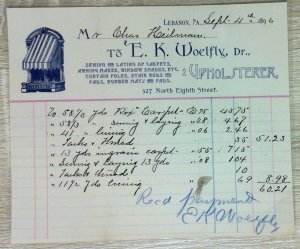 LEBANON, PA., Sept 4th 1896
Mr Chas Heilman
TO E. K. Woelfly, Dr.,
SEWING AND LAYING OF CARPETS,
AWNING MAKER, WINDOW SHADES, ETC.
CURTAIN POLES, STAIR RODS AND
PADS, RUBBER MATS AND PADS.
UPHOLSTERER,
927 North Eighth Street.
To 58⅓ yds Carpet 75 43.75
" 58⅓ " sewing & laying "08 4.67
" 41 " lining "06 2.46
" Tacks & thread 35 51.23
" 13 yds ingrain carpet "55 7.15
" Sewing & laying 13 yds "08 1.04
" Tacks & thread 10
" 11½ yds lining 69 8.98
60.21
Recd payment
E K Woelfly